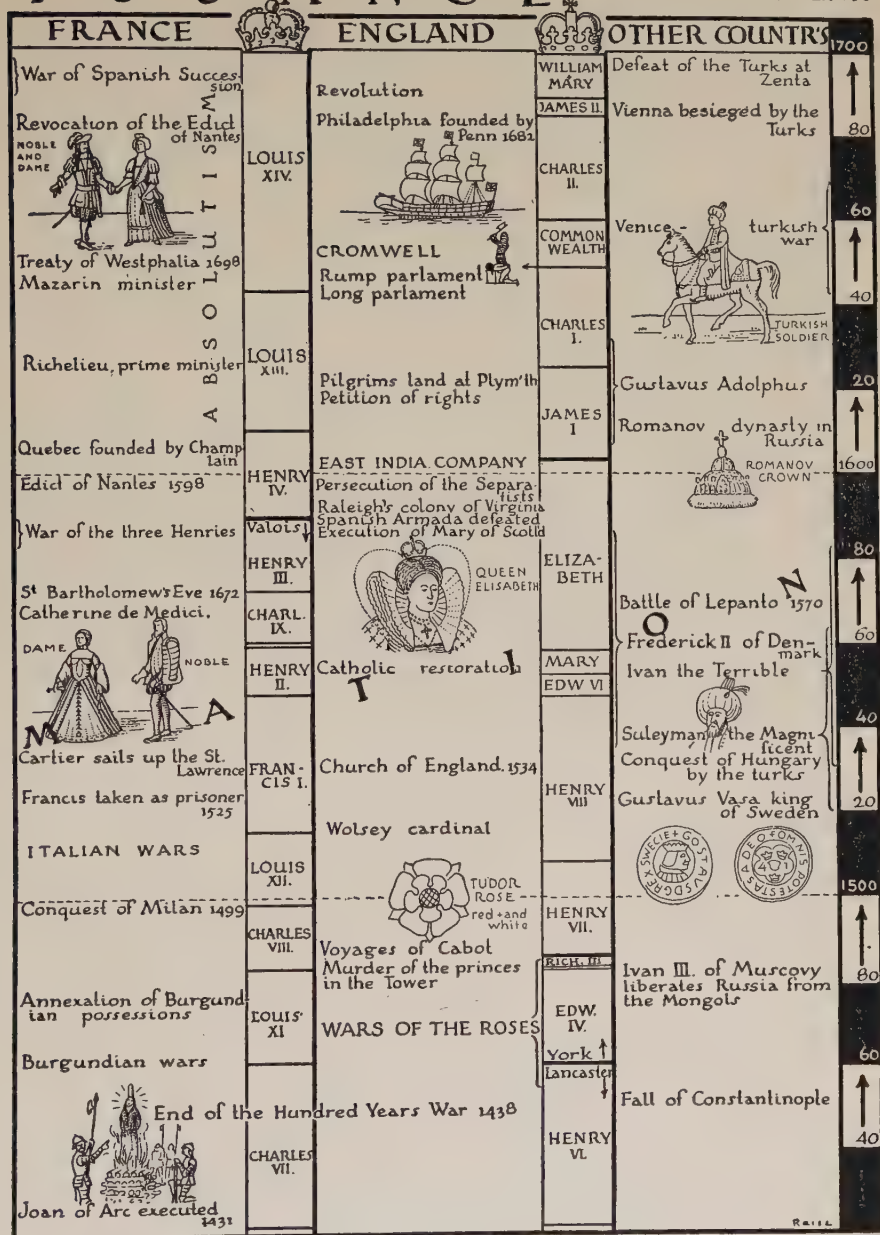 FRANCE
ENGLAND
OTHER COUNTR'S
1700
War of Spanish Succes-
sion
Revocation of the Edict
of Nantes
NOBLE
AND
DAME
Treaty of Westphalia 1698
Mazarin minister
Richelieu, prime minister
Quebec founded by Champ
lain
Edict of Nantes 1598
War of the three Henries
St Bartholomew's Eve 1672
Catherine de Medici.
DAME
NOBLE
Cartier sails up the St.
Lawrence
Francis taken as prisoner
1525
ITALIAN WARS
Conquest of Milan 1499
Annexation of Burgund
ian possessions
Burgundian wars
End of the Hundred Years War 1438
Joan of Arc executed
1431
ABSOLUTISM
LOUIS
XIV.
LOUIS
XIII.
HENRY
IV.
Valois
HENRY
III.
CHARL.
IX.
HENRY
II.
FRAN-
CIS I.
LOUIS
XII.
CHARLES
VIII.
LOUIS
XI
CHARLES
VII.
Revolution
Philadelphia founded by
Penn 1682
CROMWELL
Rump parlament
Long parlament
Pilgrims land at Plym'th
Petition of rights
EAST INDIA COMPANY
Persecution of the Separa-
tists
Raleigh's colony of Virginia
Spanish Armada defeated
Execution of Mary of Scotl'd
QUEEN
ELISABETH
Catholic restoration
Church of England. 1534
Wolsey cardinal
TUDOR
ROSE
red + and
white
Voyages of Cabot
Murder of the princes
in the Tower
WARS OF THE ROSES
WILLIAM
MARY
JAMES II.
CHARLES
II.
COMMON
WEALTH
CHARLES
I.
JAMES
I
ELIZA-
BETH
MARY
EDW VI
HENRY
VIII
HENRY
VII.
RICH. III
EDW.
IV.
York
Lancaster
HENRY
VI.
Defeat of the Turks at
Zenta
Vienna besieged by the
Turks
Venice - turkish
war
TURKISH
SOLDIER
Gustavus Adolphus
Romanov dynasty in
Russia
ROMANOV
CROWN
Battle of Lepanto 1570
Frederick II of Den-
mark
Ivan the Terrible
Suleyman the Magni
ficent
Conquest of Hungary
by the turks
Gustavus Vasa king
of Sweden
Ivan III. of Muscovy
liberates Russia from
the Mongols
Fall of Constantinople
Raisz
M A T I O N
80
60
40
20
1600
80
60
40
20
1500
80
60
40